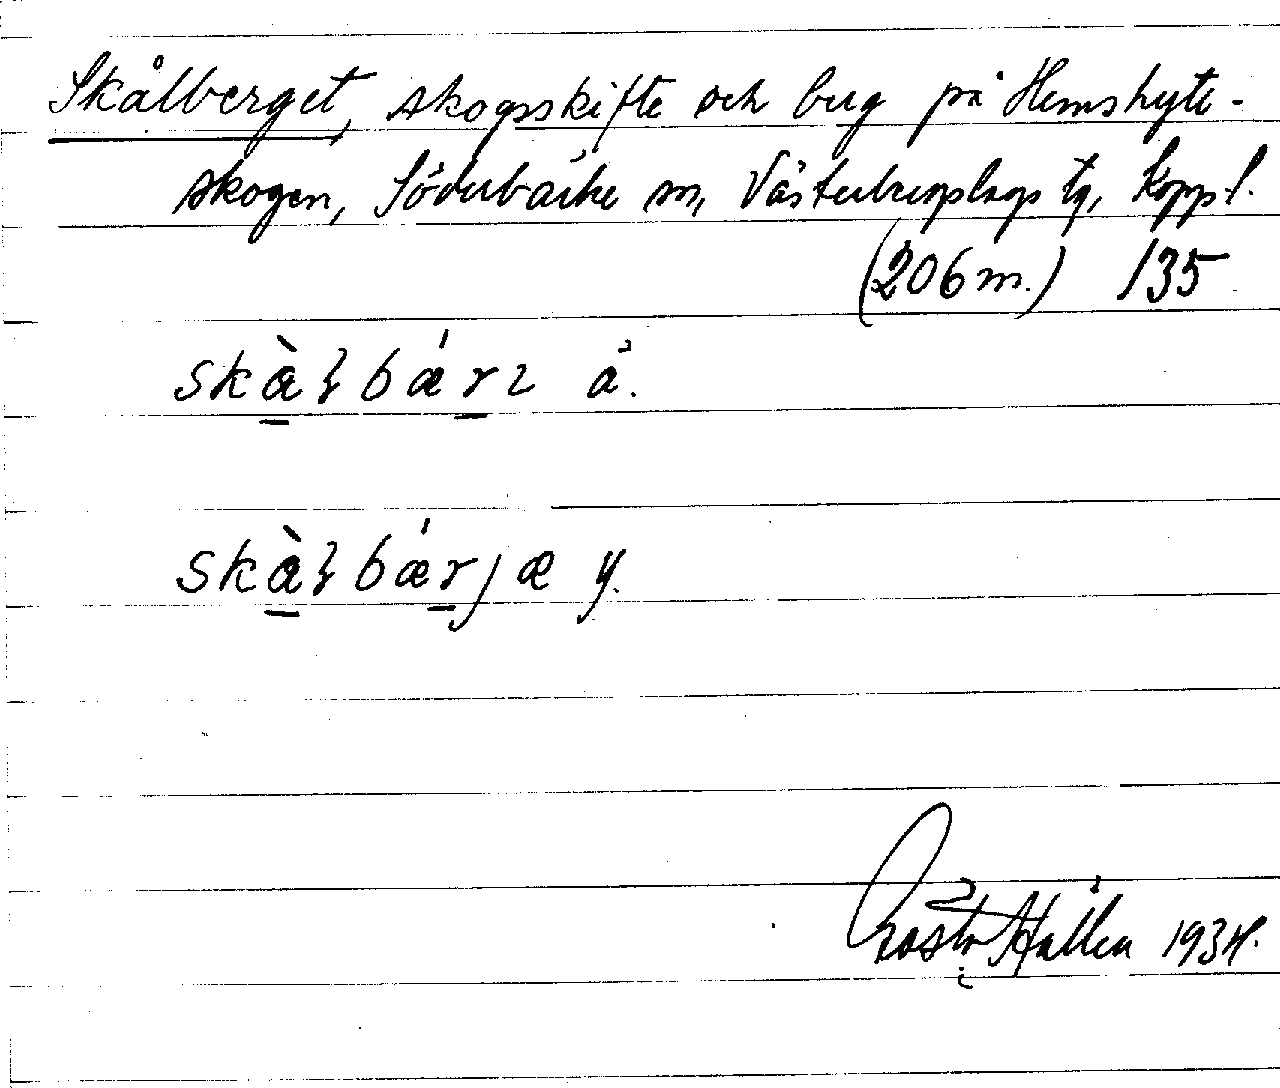 Skålberget, skogsskifte och berg på Hemshytte-
skogen, Söderbärke sn, Västerbergslags tg, Kopp. l.
(206 m.) 135
skàɭbæ̀rɩ å.
skàɭbæ̀rjæ y.
Gösta Hallén 1934.